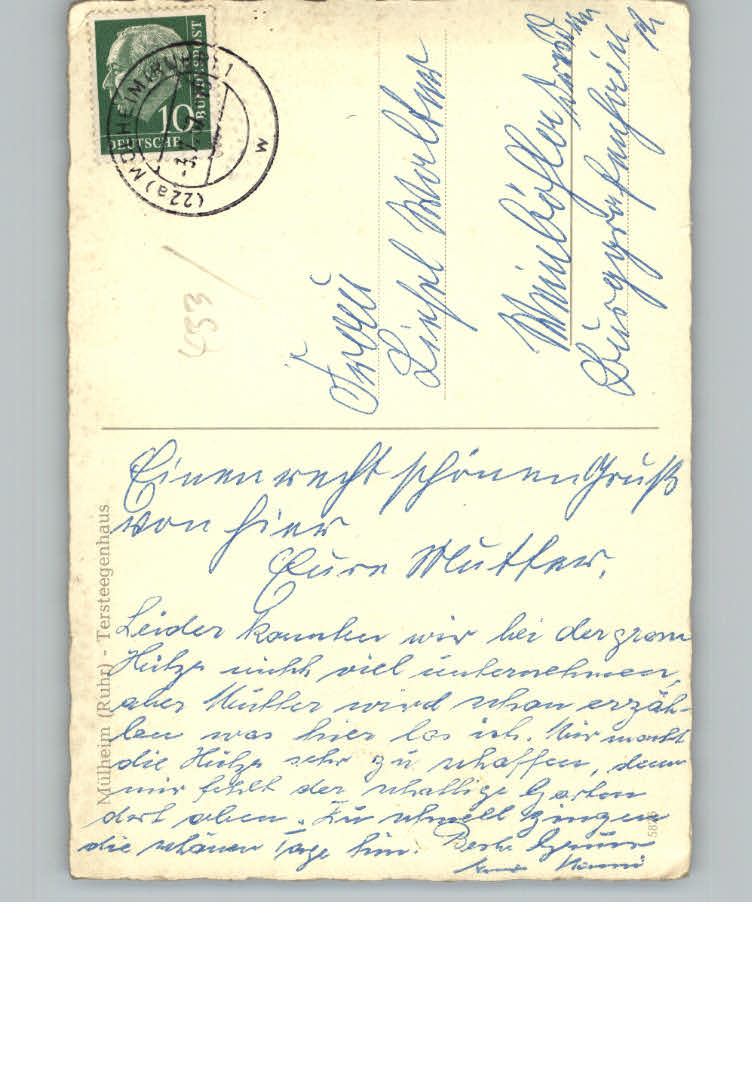 DEUTSCHE
BUNDESPOST
10
(22a) MÜLHEIM (RUHR) 1
w
433
Frau
Liesel Walter
Burggrafenhain
Einen recht schönen Gruß
von hier
Eure Mutter.
Leider konnten wir bei der grossen
Hitze nicht viel unternehmen,
aber Mutter wird schon erzäh-
len was hier los ist. Mir macht
die Hitze sehr zu schaffen, denn
mir fehlt der schattige Garten
dort oben. Zu schnell gingen
die schönen Tage hin. Beste Grüsse
Mülheim (Ruhr) - Tersteegenhaus